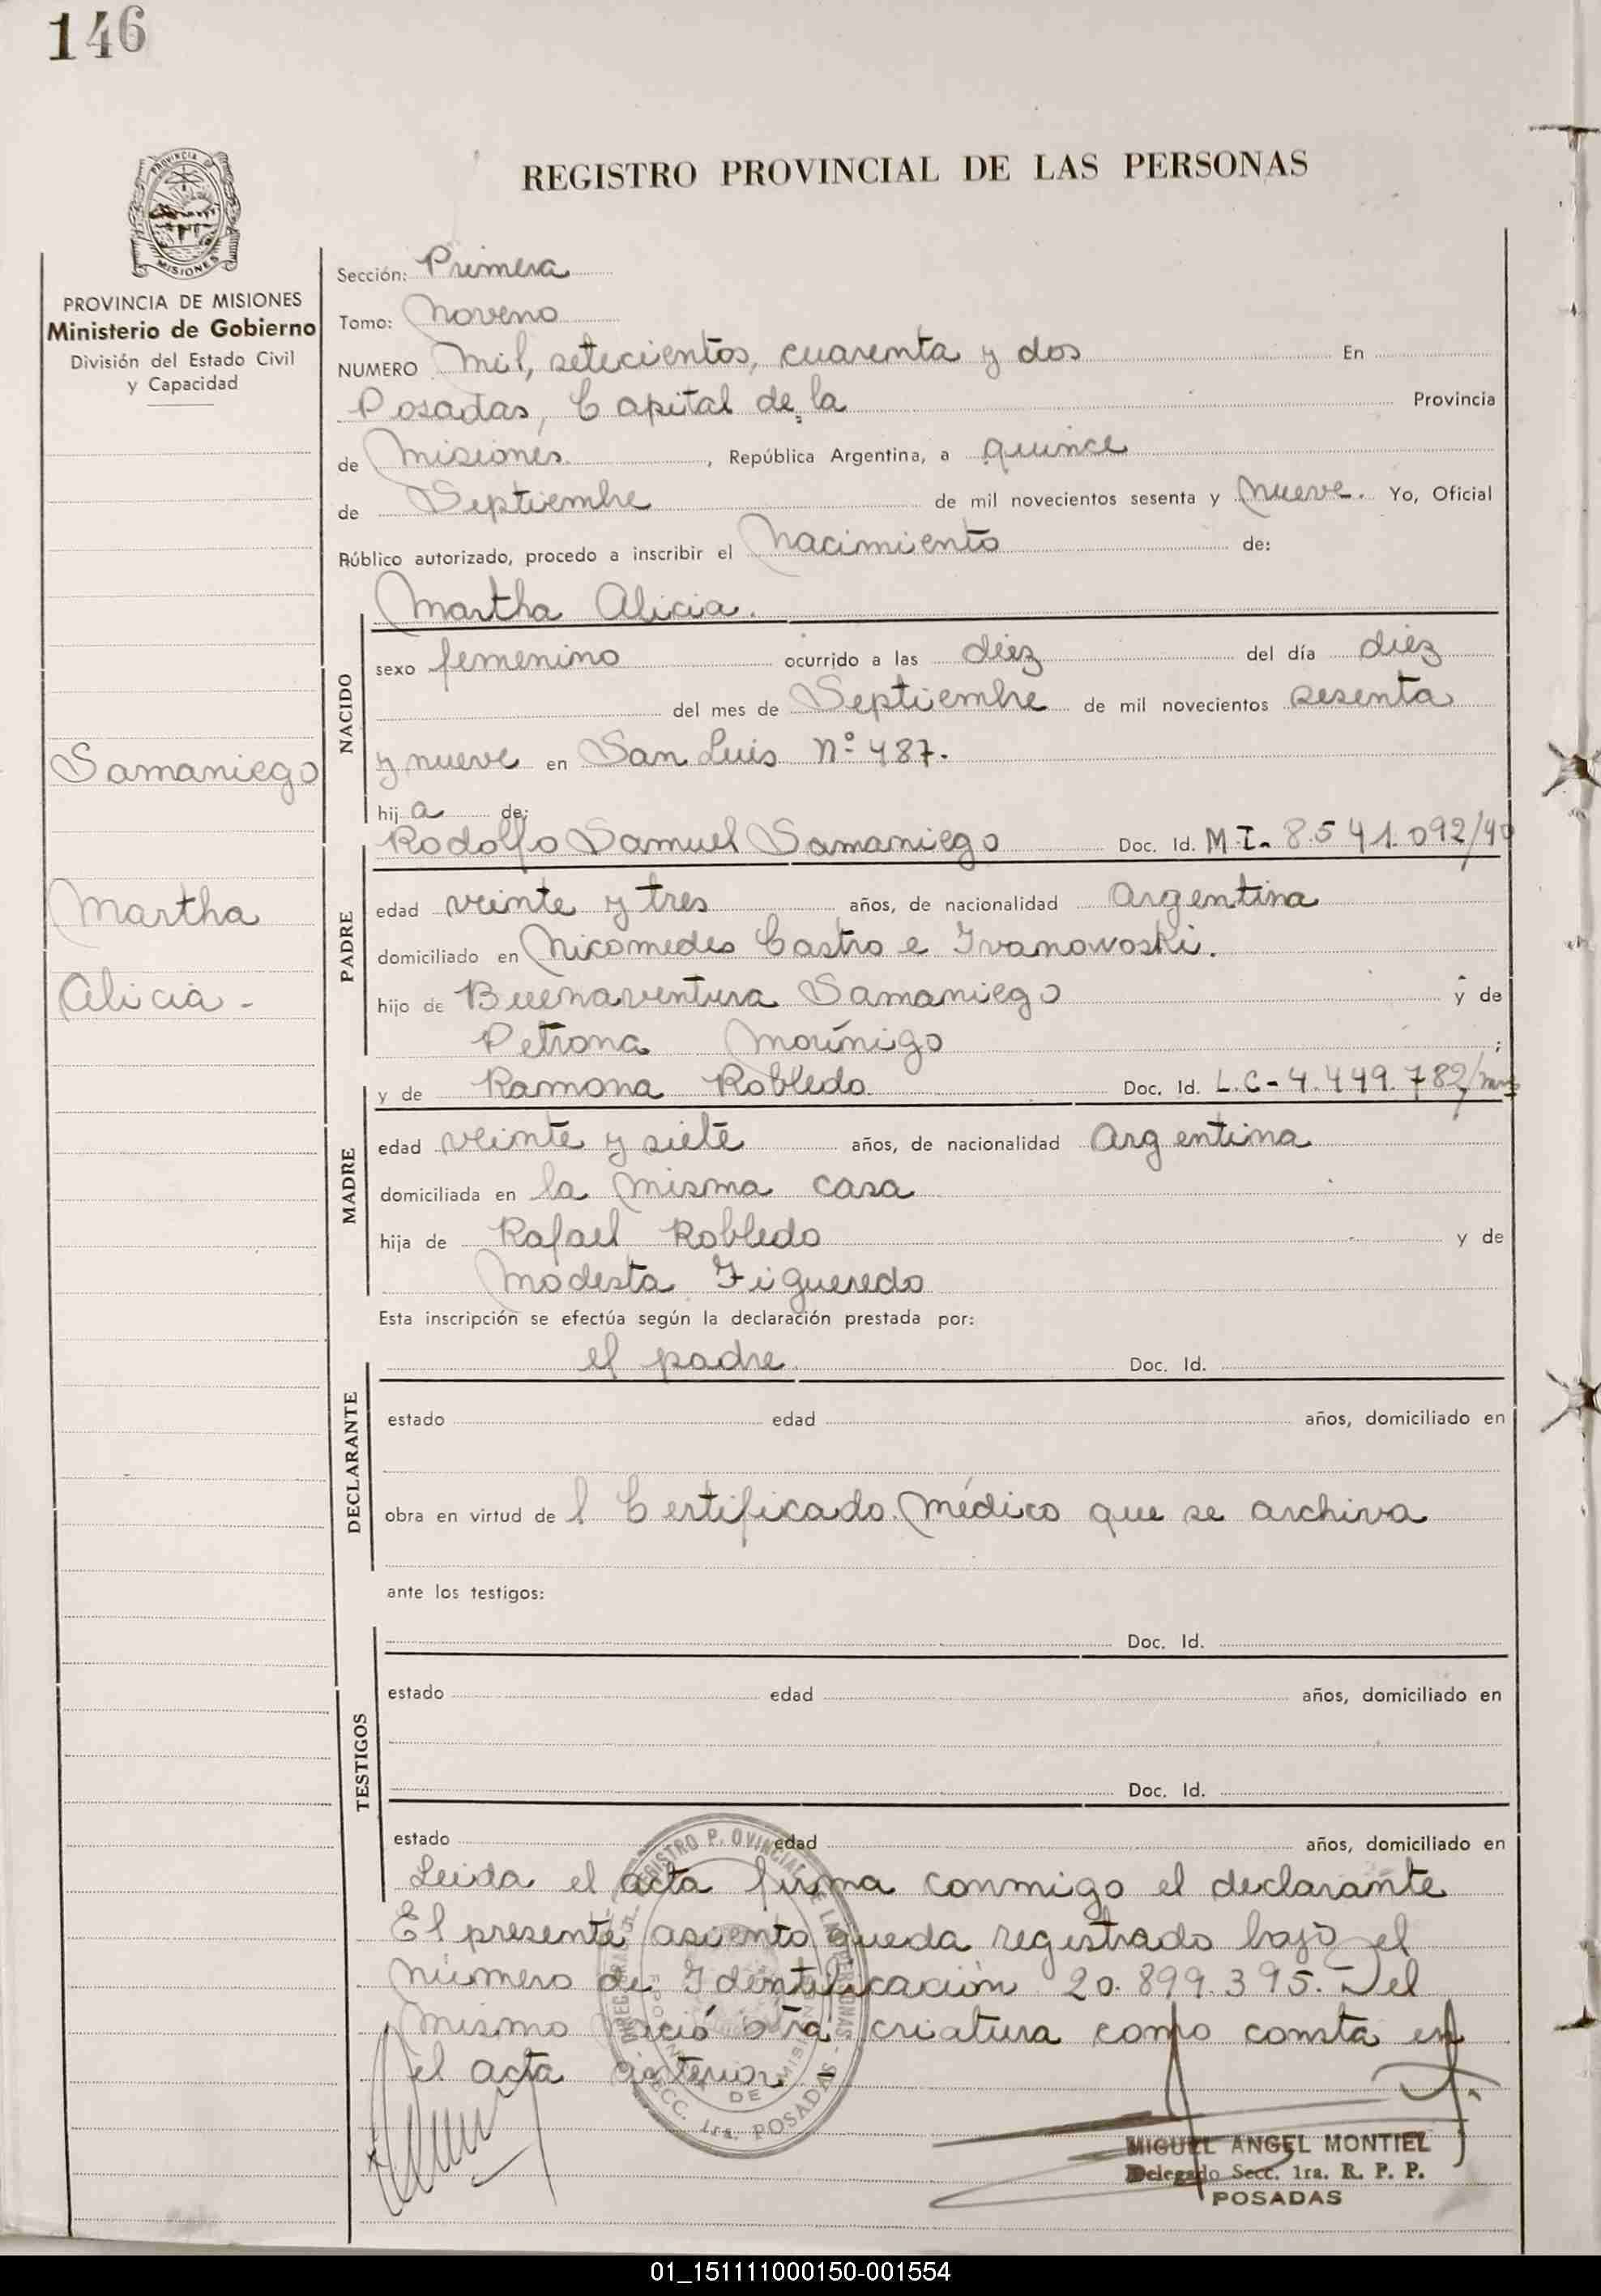 146
REGISTRO PROVINCIAL DE LAS PERSONAS
PROVINCIA DE MISIONES
PROVINCIA DE MISIONES
Ministerio de Gobierno
División del Estado Civil
y Capacidad
Samaniego
Martha
Alicia -
Sección: Primera
Tomo: Noveno
NUMERO Mil, setecientos, cuarenta y dos En
Posadas, Capital de la Provincia
de Misiones , República Argentina, a quince
de Septiembre de mil novecientos sesenta y nueve. Yo, Oficial
Público autorizado, procedo a inscribir el Nacimiento de:
Martha Alicia.
NACIDO
sexo femenino ocurrido a las diez del día diez
del mes de Septiembre de mil novecientos sesenta
y nueve en San Luis Nº 487.
hija de:
PADRE
Rodolfo Samuel Samaniego Doc. Id. M.I- 8.541.092/40
edad veinte y tres años, de nacionalidad Argentina
domiciliado en Nicomedes Castro e Ivanowoski.
hijo de Buenaventura Samaniego y de
Petrona Morínigo ;
MADRE
y de Ramona Robledo. Doc. Id. L.C-4.449.782/
edad veinte y siete años, de nacionalidad Argentina
domiciliada en la misma casa
hija de Rafael Robledo y de
Modesta Figueredo
Esta inscripción se efectúa según la declaración prestada por:
DECLARANTE
el padre. Doc. Id.
estado edad años, domiciliado en
obra en virtud del Certificado Médico que se archiva
ante los testigos:
TESTIGOS
Doc. Id.
estado edad años, domiciliado en
Doc. Id.
estado edad años, domiciliado en
Leida el acta firma conmigo el declarante
El presente asiento queda registrado bajo el
número de Identificación 20.899.395. Del
mismo nació otra criatura como consta en
el acta anterior -
REGISTRO P.OVINCIAL DE LAS PERSONAS
SECC. 1ra. POSADAS
MIGUEL ANGEL MONTIEL
Delegado Secc. 1ra. R. P. P.
POSADAS
01_151111000150-001554